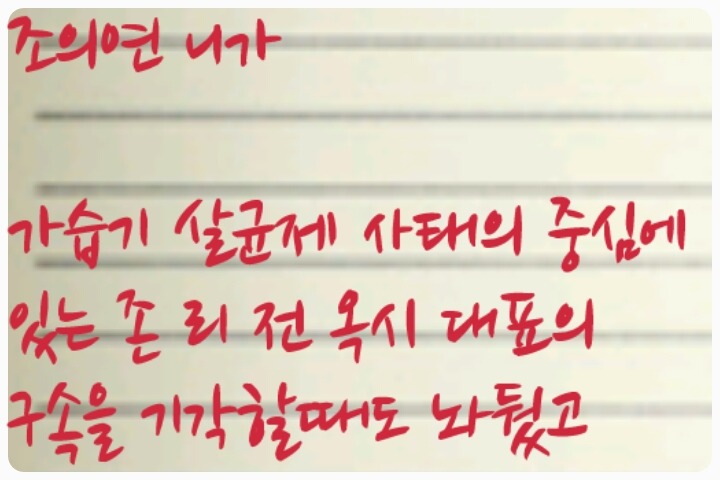 조의연 니가
가습기 살균제 사태의 중심에
있는 존 리 전 옥시 대표의
구속을 기각할때도 놔뒀고